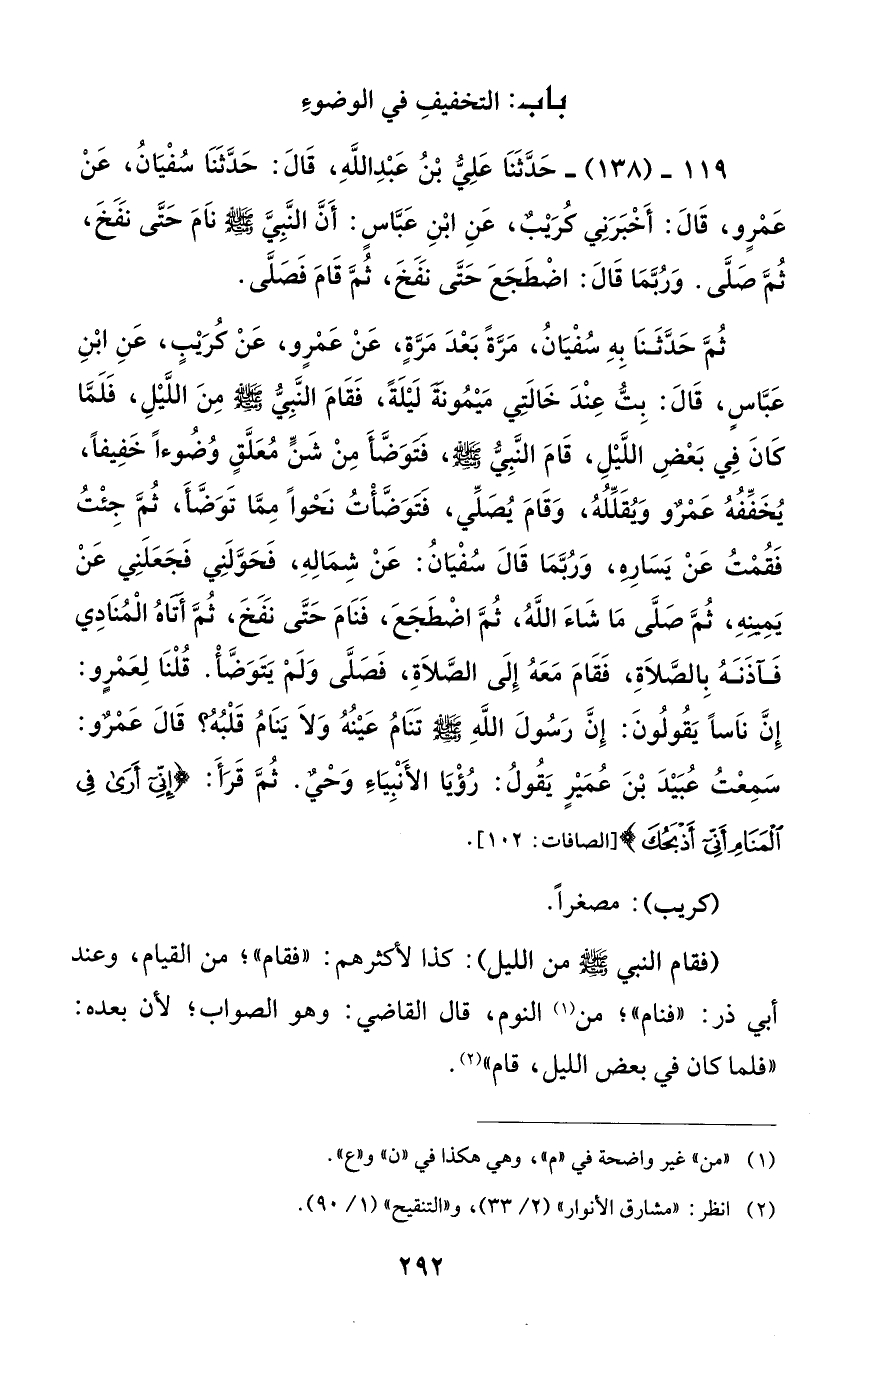 باب: التخفيفِ في الوضوءِ
١١٩ - (١٣٨) - حَدَّثَنَا عَلِيُّ بْنُ عَبْدِاللَّهِ، قَالَ: حَدَّثَنَا سُفْيَانُ، عَنْ
عَمْرٍو، قَالَ: أَخْبَرَنِي كُرَيْبٌ، عَنِ ابْنِ عَبَّاسٍ: أَنَّ النَّبِيَّ ﷺ نَامَ حَتَّى نَفَخَ،
ثُمَّ صَلَّى. وَرُبَّمَا قَالَ: اضْطَجَعَ حَتَّى نَفَخَ، ثُمَّ قَامَ فَصَلَّى.
ثُمَّ حَدَّثَنَا بِهِ سُفْيَانُ، مَرَّةً بَعْدَ مَرَّةٍ، عَنْ عَمْرٍو، عَنْ كُرَيْبٍ، عَنِ ابْنِ
عَبَّاسٍ، قَالَ: بِتُّ عِنْدَ خَالَتِي مَيْمُونَةَ لَيْلَةً، فَقَامَ النَّبِيُّ ﷺ مِنَ اللَّيْلِ، فَلَمَّا
كَانَ فِي بَعْضِ اللَّيْلِ، قَامَ النَّبِيُّ ﷺ، فَتَوَضَّأَ مِنْ شَنٍّ مُعَلَّقٍ وُضُوءاً خَفِيفاً،
يُخَفِّفُهُ عَمْرٌو وَيُقَلِّلُهُ، وَقَامَ يُصَلِّي، فَتَوَضَّأْتُ نَحْواً مِمَّا تَوَضَّأَ، ثُمَّ جِئْتُ
فَقُمْتُ عَنْ يَسَارِهِ، وَرُبَّمَا قَالَ سُفْيَانُ: عَنْ شِمَالِهِ، فَحَوَّلَنِي فَجَعَلَنِي عَنْ
يَمِينِهِ، ثُمَّ صَلَّى مَا شَاءَ اللَّهُ، ثُمَّ اضْطَجَعَ، فَنَامَ حَتَّى نَفَخَ، ثُمَّ أَتَاهُ الْمُنَادِي
فَآذَنَهُ بِالصَّلاَةِ، فَقَامَ مَعَهُ إِلَى الصَّلاَةِ، فَصَلَّى وَلَمْ يَتَوَضَّأْ. قُلْنَا لِعَمْرٍو:
إِنَّ نَاساً يَقُولُونَ: إِنَّ رَسُولَ اللَّهِ ﷺ تَنَامُ عَيْنُهُ وَلاَ يَنَامُ قَلْبُهُ؟ قَالَ عَمْرٌو:
سَمِعْتُ عُبَيْدَ بْنَ عُمَيْرٍ يَقُولُ: رُؤْيَا الأَنْبِيَاءِ وَحْيٌ. ثُمَّ قَرَأَ: ﴿إِنِّيٓ أَرَىٰ فِي
ٱلْمَنَامِ أَنِّيٓ أَذْبَحُكَ﴾[الصافات: ١٠٢].
(كريب): مصغراً.
(فقام النبي ﷺ من الليل): كذا لأكثرهم: «فقام»؛ من القيام، وعند
أبي ذر: «فنام»؛ من(١) النوم، قال القاضي: وهو الصواب؛ لأن بعده:
«فلما كان في بعض الليل، قام»(٢).
(١) «من» غير واضحة في «م»، وهي هكذا في «ن» و«ع».
(٢) انظر: «مشارق الأنوار» (٢/ ٣٣)، و«التنقيح» (١/ ٩٠).
٢٩٢